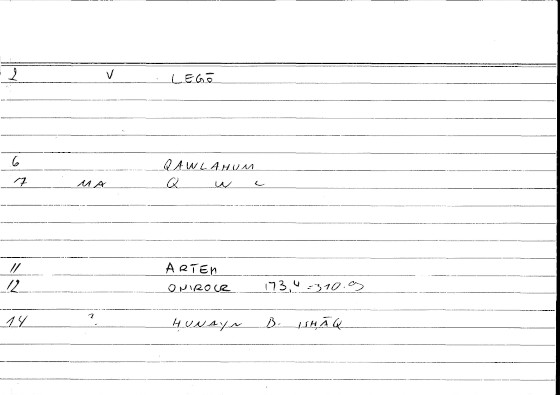 2 V LEGŌ
6 QAWLAHUM
7 MA Q W L
11 ARTEM
12 ONIROCR 173,4 = 310.9
14 ? HUNAYN B. ISHĀQ